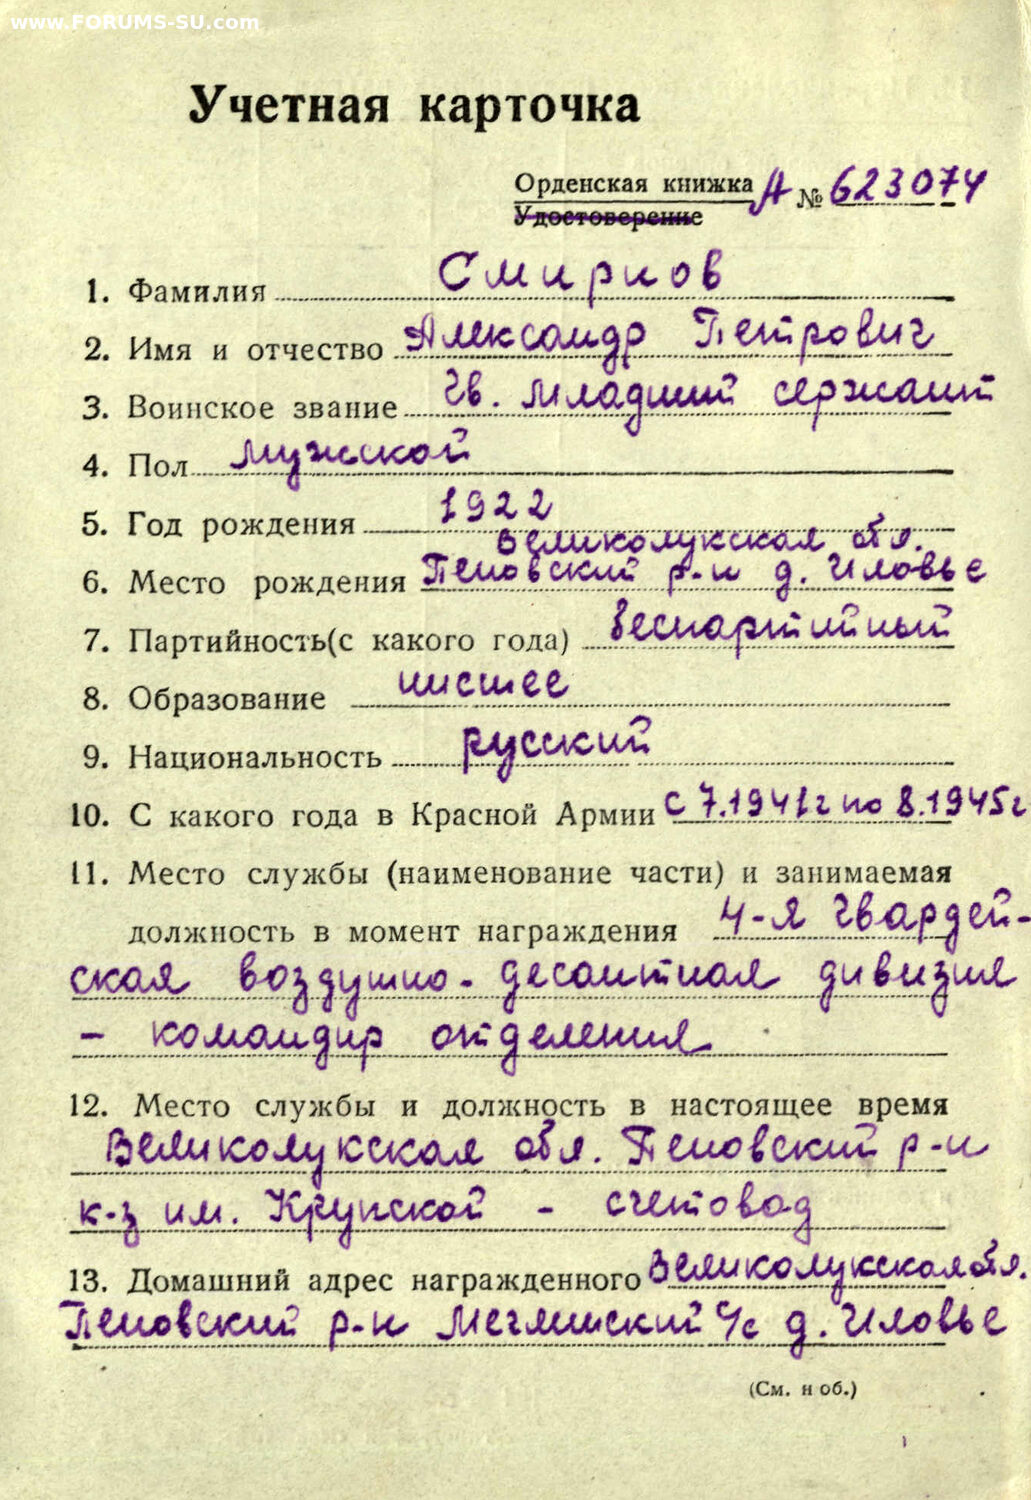 www.FORUMS-SU.com
Учетная карточка
Орденская книжка А № 623074
Удостоверение
1. Фамилия Смирнов
2. Имя и отчество Александр Петрович
3. Воинское звание Гв. Младший сержант
4. Пол мужской
5. Год рождения 1922
Великолукская обл.
6. Место рождения Пеновский р-н д. Иловье
7. Партийность(с какого года) беспартийный
8. Образование низшее
9. Национальность русский
10. С какого года в Красной Армии с 7.1941г по 8.1945г
11. Место службы (наименование части) и занимаемая
должность в момент награждения 4-я Гвардей-
ская воздушно-десантная дивизия
- командир отделения
12. Место службы и должность в настоящее время
Великолукская обл. Пеновский р-н
к-з им. Крупской - счетовод
13. Домашний адрес награжденного Великолукская обл.
Пеновский р-н Меглинский с/с д. Иловье
(См. н об.)